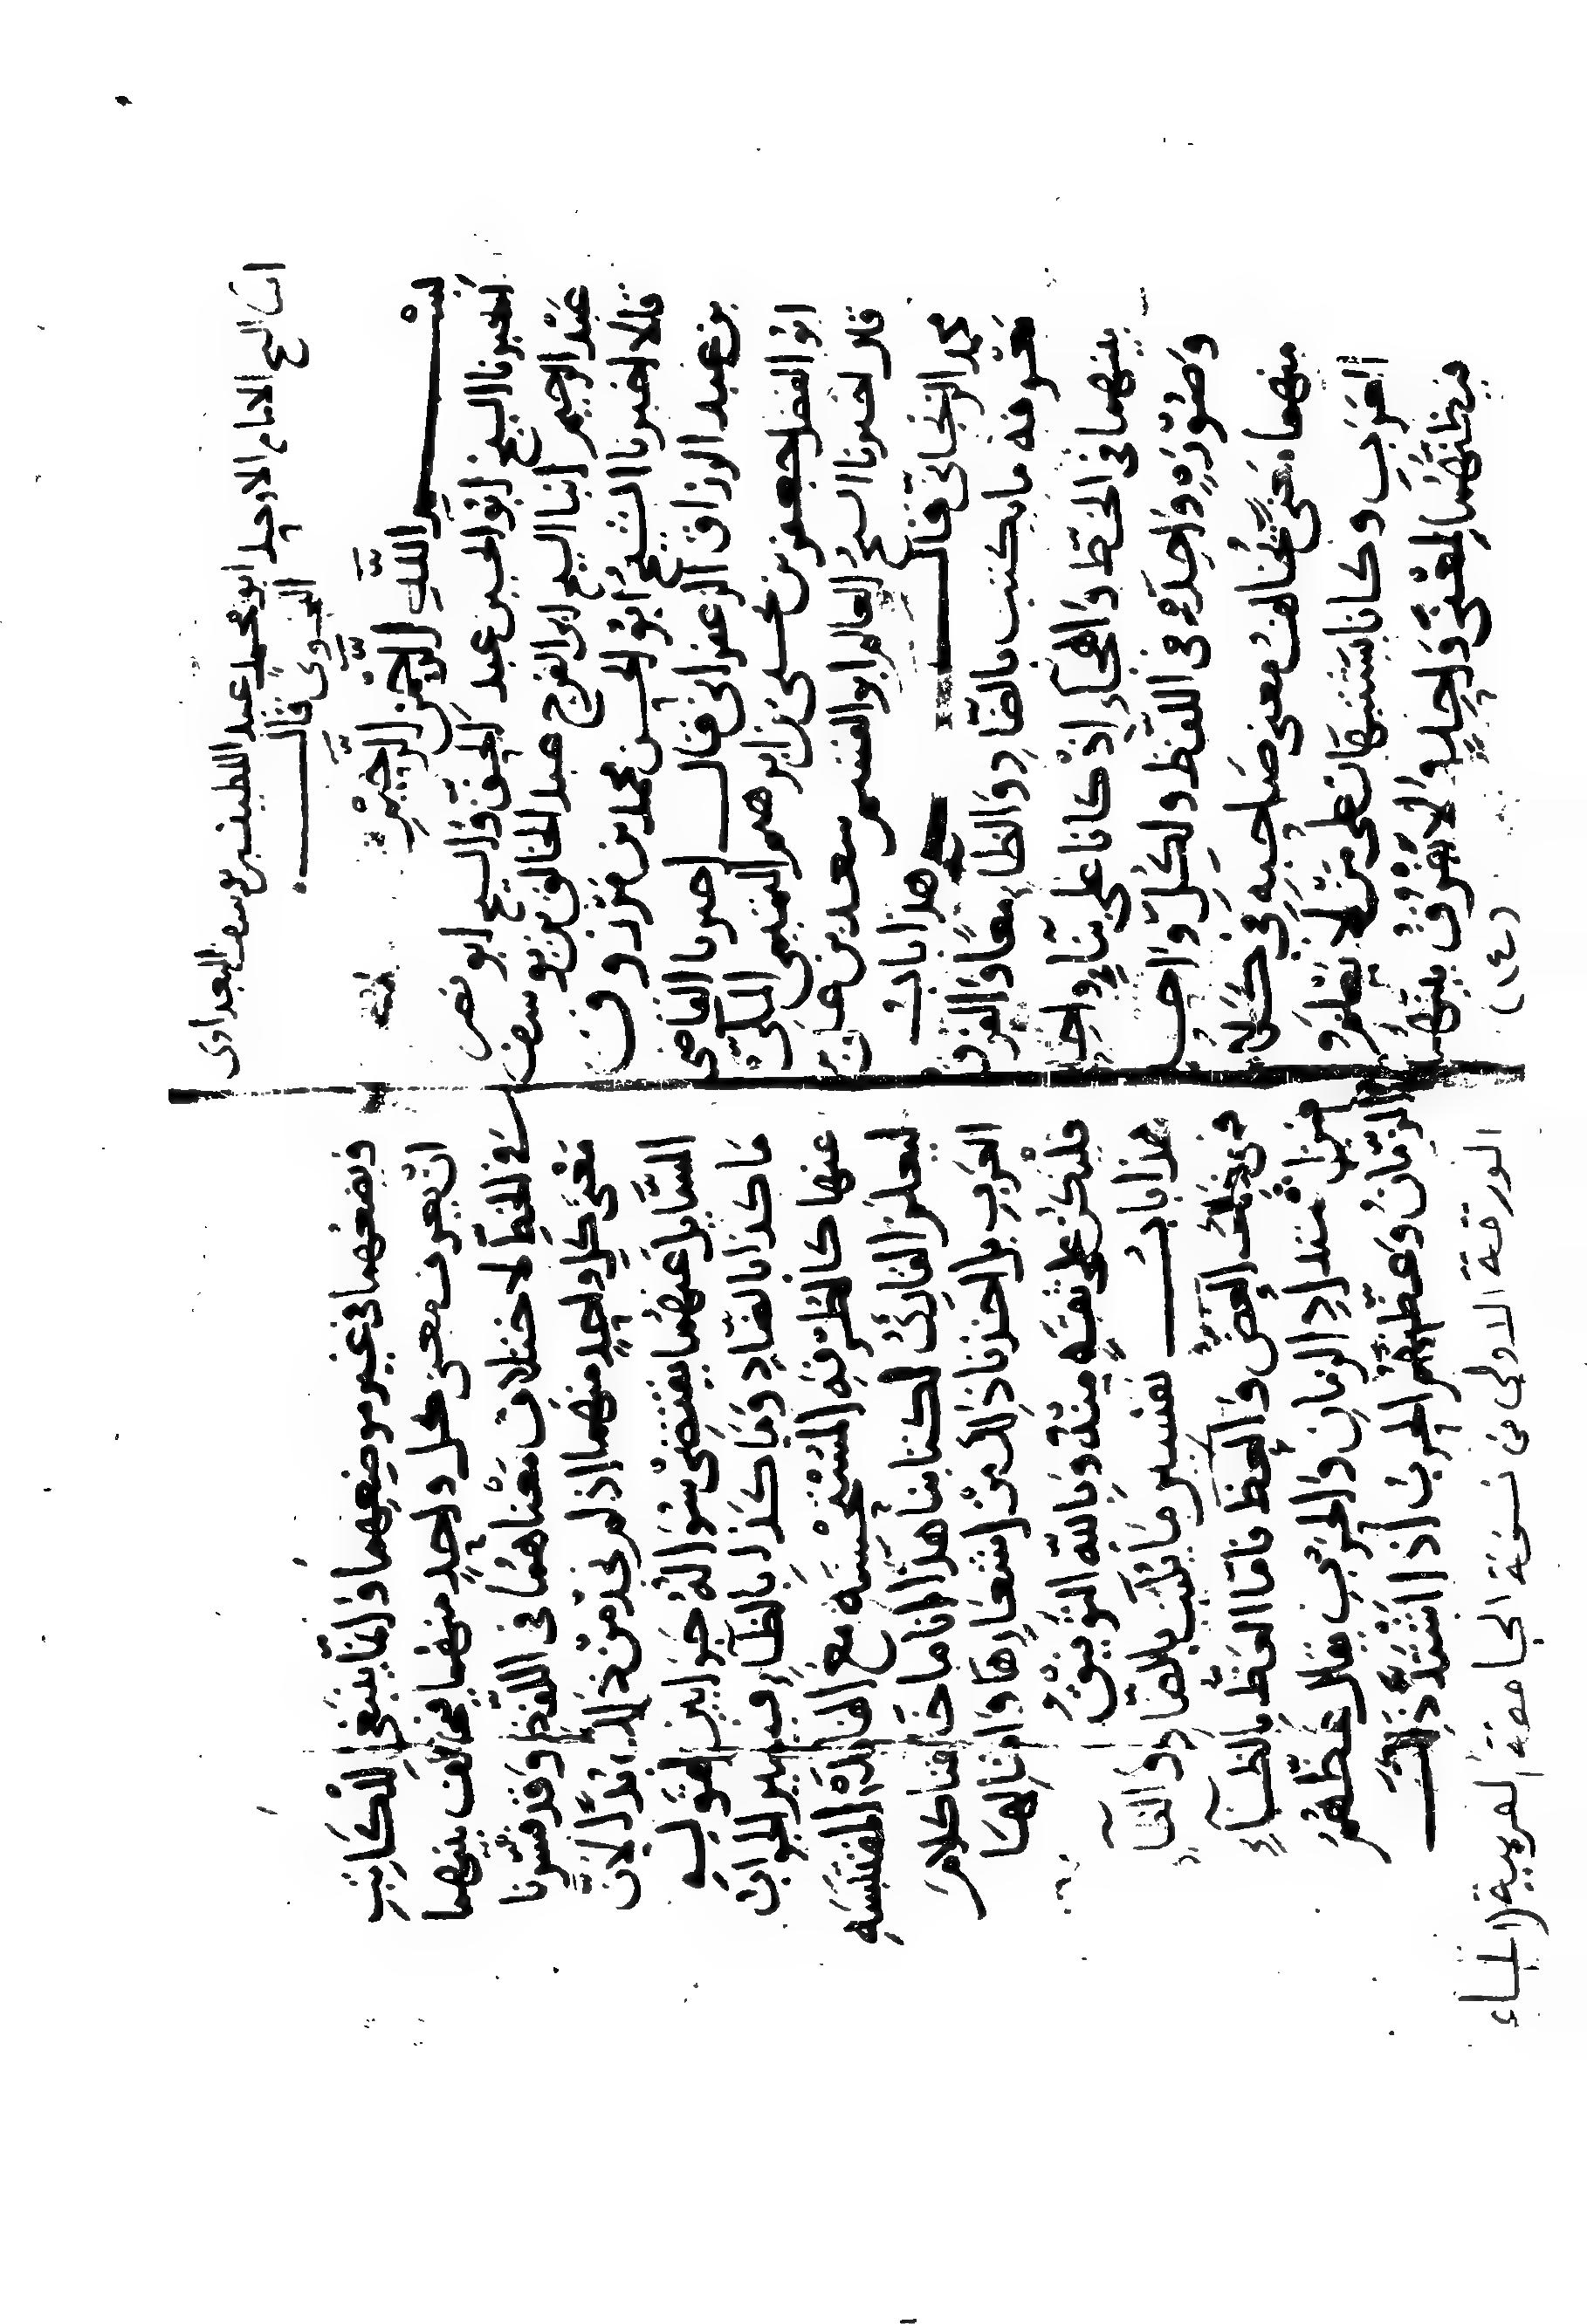 انبا الشيخ الامام الاوحد ابو محمد عبد اللطيف بن يوسف البغدادى
النحوى قال
بسم الله الرحمن الرحيم
اخبرنا الشيخ ابو الحسين عبد الحق والشيخ ابو نصر
عبد الرحيم انبا الشيخ ابو الفرج عبد الخالق بن يوسف
قالا اخبرنا الشيخ ابو الحسن محمد بن مرزوق
بن عبد الرزاق الزعفرانى قال اخبرنا القاضى
ابو الفضل جعفر بن يحيى بن ابرهيم التميمى المكى
قال اخبرنا الشيخ العالم ابو القسم سعد بن على بن
محمد الزنجانى قال هذا باب
معرفة ما يكتب بالضاد والظاء معا والفرق
بينهما فى الخط والهجاء اذ كانا على بناء واحد
وصورة واحدة فى اللفظ ولكل واحد
منهما معنى يخالف معنى صاحبه فى كلام
العرب وكانا يشتبهان على من لا يعلم
فيظنهما لمعنى واحد ولا يفرق بينهما
(١٤٠)
فيضعهما فى غير موضعهما وانما ينبغى للكاتب
ان يعرف معنى كل واحد منهما فيخالف بينهما
فى الخط لاختلاف معناهما فى اللفظ وقد فسرنا
معنى كل واحد منهما اذ لم نجد من ذلك بدا لان
السايل عنهما يقتضى سؤاله جوابين لقوله
ما كذا بالضاد وما كذا بالظاء فيصير الجواب
عنها كالطرفة المستحسنة مع الفائدة المقتبسة
ليعلم القارئ لكتابنا هذا انا ما خالفنا كلام
العرب بل اخذنا ذلك من اشعارها وامثالها
فليكن على ثقة منه وبالله التوفيق
هذا باب تفسير ما يكتب بالضاد والظاء
فمن ذلك العض والعظ فاما العظ بالظاء
فهو اشتداد الزمان والحرب يقال عظهم
الزمان وعظتهم الحرب اذا اشتد ذلك
الورقة الاولى من نسخة الجامعة العربية (الظاء